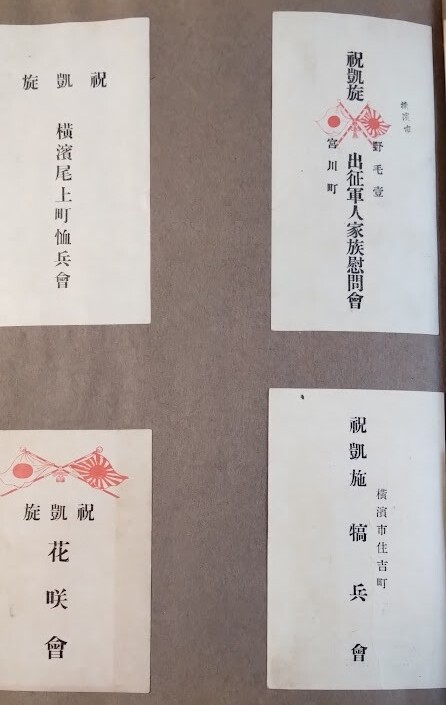 橫濱市
野毛壹
宮川町
祝凱旋 出征軍人家族慰問會
祝凱旋
橫濱尾上町恤兵會
橫濱市住吉町
祝凱施 犒兵會
祝凱旋
花咲會